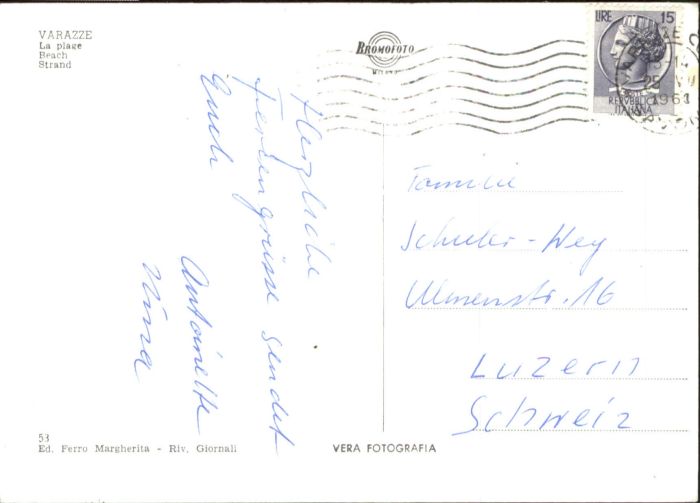 VARAZZE
La plage
Beach
Strand
BROMOFOTO
MILANO
LIRE 15
REPVBBLICA
ITALIANA
1961
Herzliche
Feriengrüsse sendet
Euch
Antoinette
Nina
Familie
Schuler-Wey
Ulmenstr. 16
Luzern
Schweiz
53
Ed. Ferro Margherita - Riv. Giornali
VERA FOTOGRAFIA